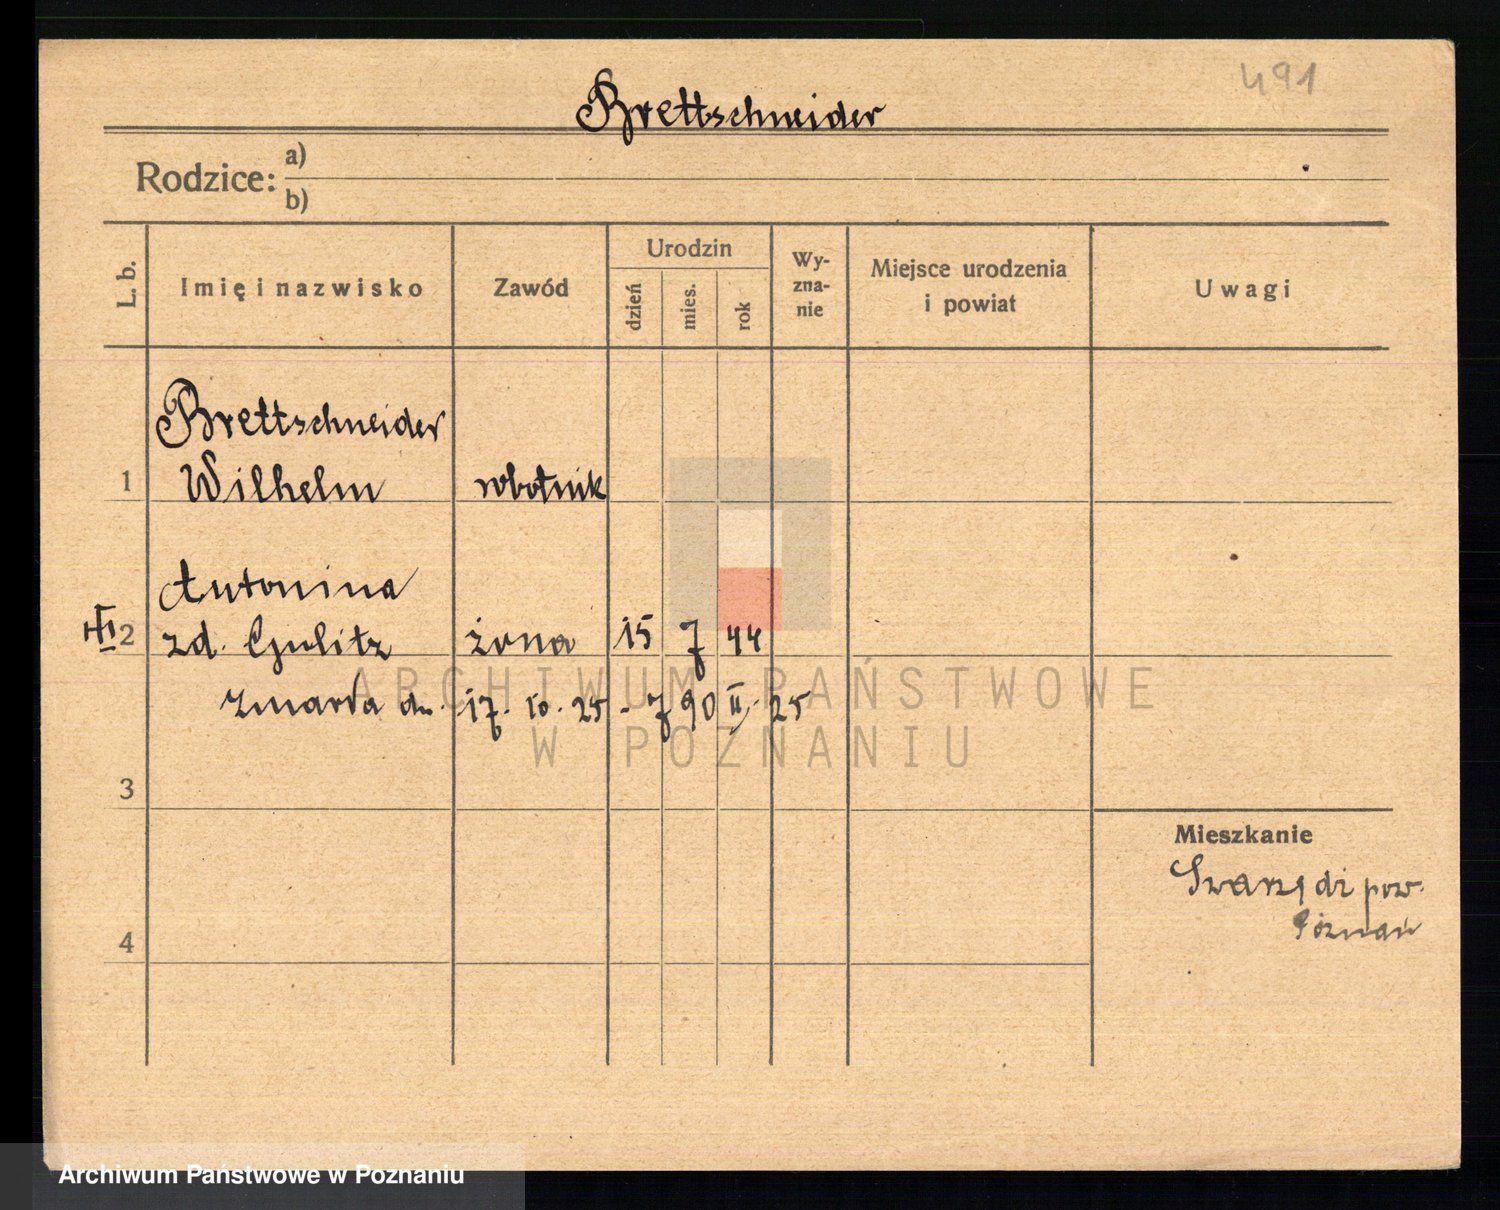 491
Brettschneider
Rodzice:
a)
b)
L. b.
Imię i nazwisko
Zawód
Urodzin
dzień
mies.
rok
Wy-
zna-
nie
Miejsce urodzenia
i powiat
Uwagi
Brettschneider
1 Wilhelm robotnik
Antonina
2 zd. Gulitz żona 15 7 44
zmarła dn. 17. 10. 25 - 790 II, 25
3
4
Mieszkanie
Swarzędz pow.
Poznań
ARCHIWUM PAŃSTWOWE
W POZNANIU
Archiwum Państwowe w Poznaniu